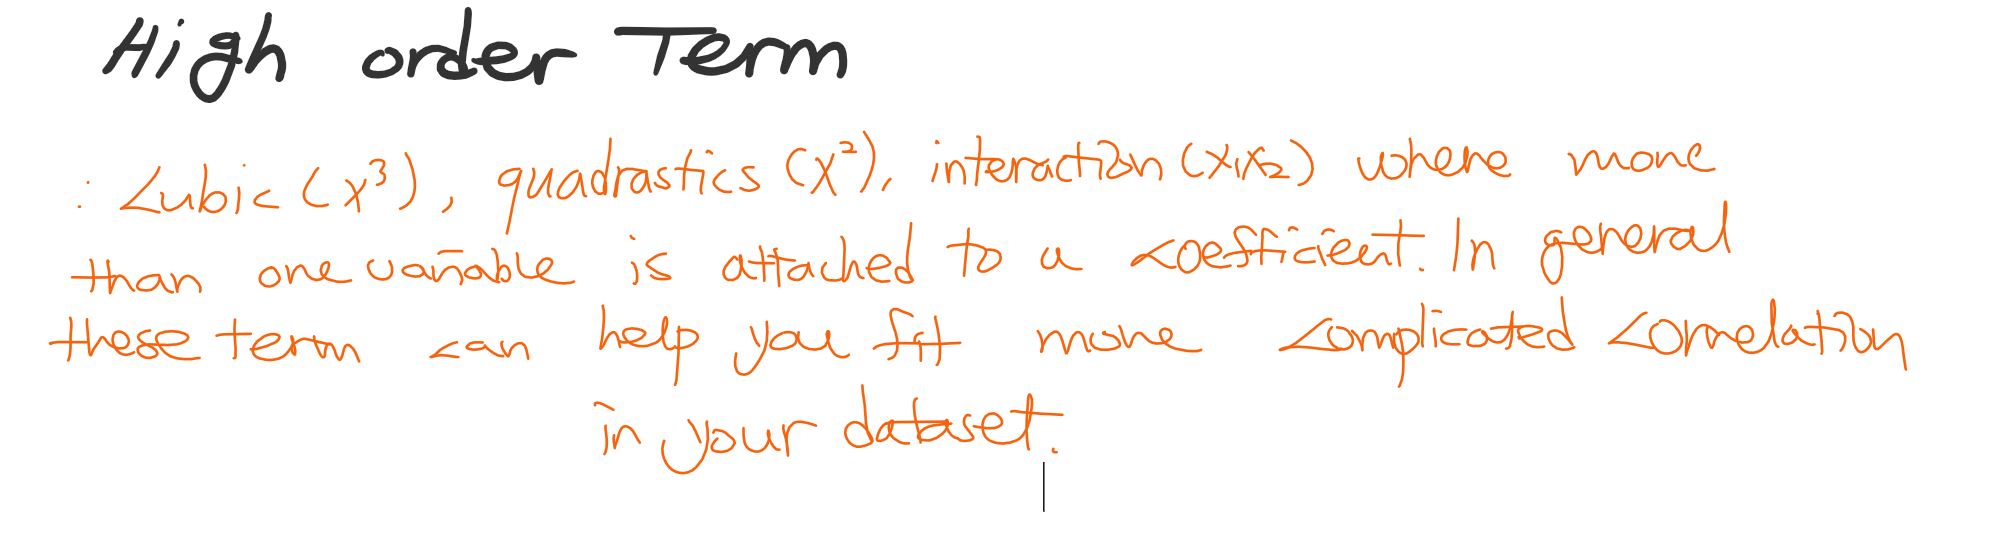 High order Term
: Cubic (x³), quadrastics (x²), interaction (x₁x₂) where more
than one variable is attached to a coefficient. In general
these term can help you fit more complicated correlation
in your dataset.